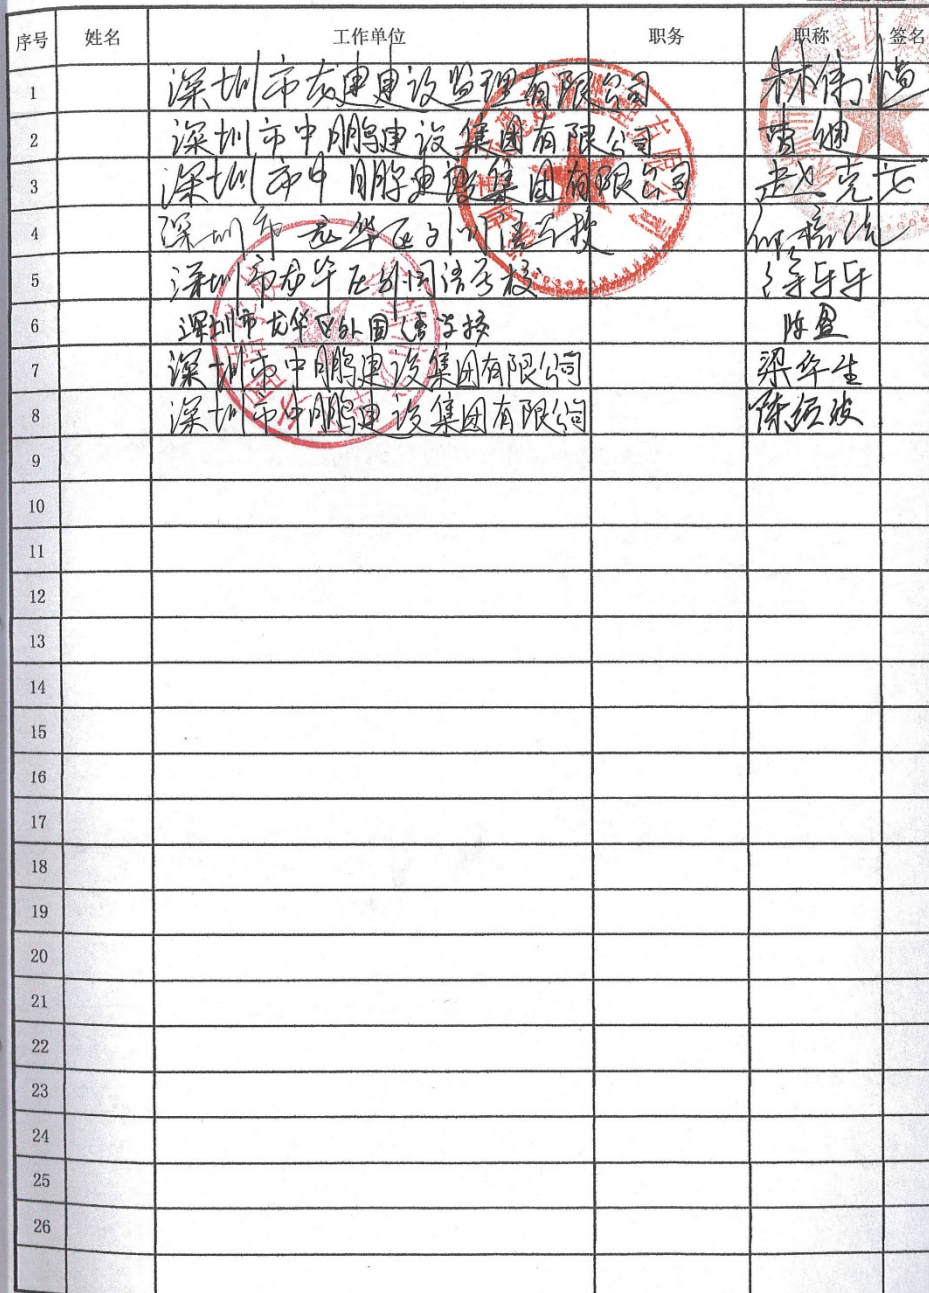 序号 姓名 工作单位 职务 职称 签名
1 深圳市龙建建设监理有限公司 林伟
2 深圳市中鹏建设集团有限公司 曹
3 深圳市中鹏建设集团有限公司 赵克
4 深圳市龙华区外国语学校
5 深圳市龙华区外国语学校
6 深圳市龙华区外国语学校 陈盈
7 深圳市中鹏建设集团有限公司 梁华生
8 深圳市中鹏建设集团有限公司 陈
9
10
11
12
13
14
15
16
17
18
19
20
21
22
23
24
25
26